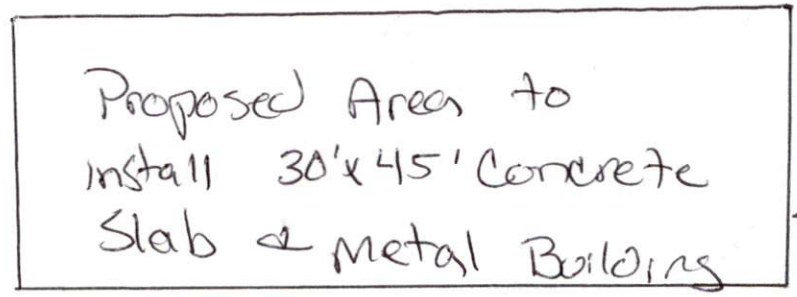 Proposed Area to
install 30'x45' Concrete
Slab & Metal Building